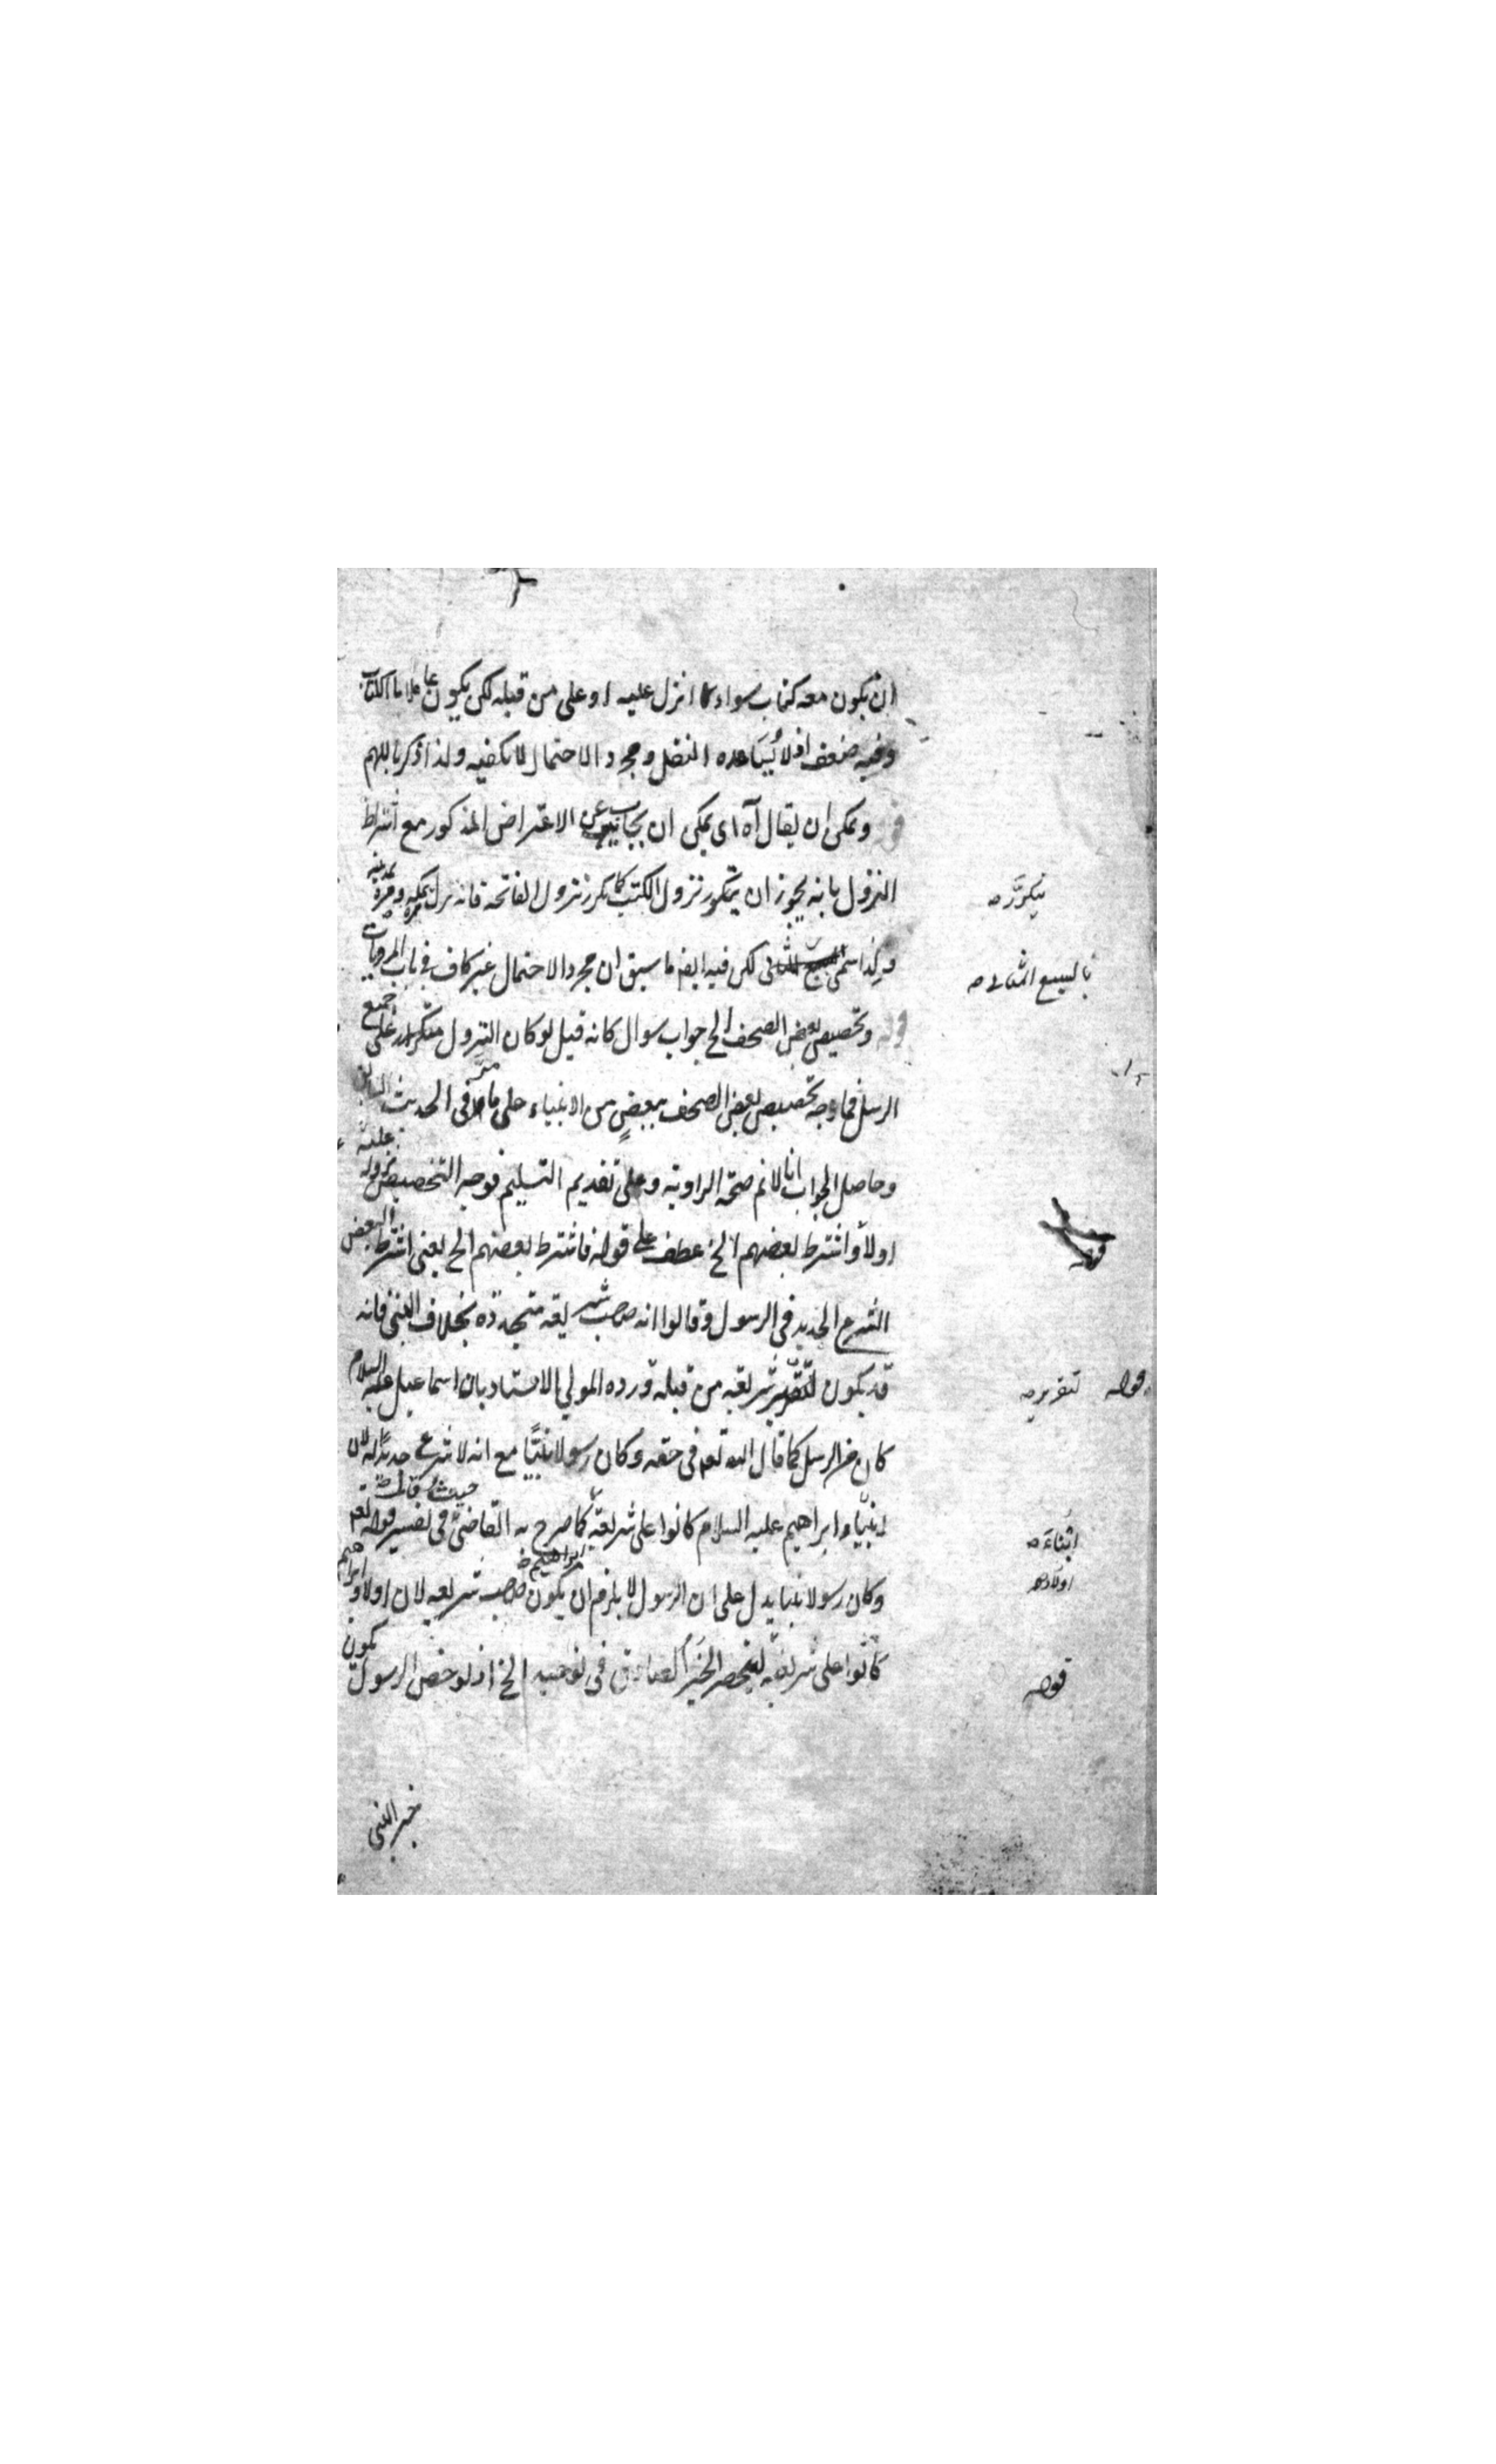 ان يكون معه كتاب سواء كان انزل عليه او على من قبله لكن يكون عاملا بالكتاب
وفيه ضعف اذ لا يساعده النقل ومجرد الاحتمال لا يكفيه ولذا ذكر باللهم
ويمكن ان يقال آه اى يمكن ان يجاب عن الاعتراض المذكور مع اشتراط
النزول بانه يجوز ان يتكرر نزول الكتب كما تكرر نزول الفاتحة فانه نزل بمكة مرة ومرة بمدينة
يتكرر صح
ولذا سمى السبع المثانى لكن فيه ايضا ما سبق ان مجرد الاحتمال غير كاف فى باب المرويات
بالسبع المثانى صح
قوله وتخصيص بعض الصحف الخ جواب سوال كانه قيل لو كان النزول متكررا على جميع
الرسل فما وجه تخصيص بعض الصحف ببعض من الانبياء على ما مر فى الحديث
وحاصل الجواب انا لانم صحة الرواية وعلى تقديم التسليم فوجه التخصيص نزوله عليه
اولا واشترط بعضهم الخ عطف على قوله فاشترط بعضهم الخ يعنى اشترط البعض
قوله
الشرع الجديد فى الرسول وقالوا انه صاحب شريعة متجددة بخلاف النبى فانه
قد يكون لتقرير شريعة من قبله ورده المولى الاستاد بان اسماعيل عليه السلام
قوله لتقرير صح
كان من الرسل كما قال الله تعم فى حقه وكان رسولا نبيا مع انه لا شرع جديدا له لان
ابنياء ابراهيم عليه السلام كانوا على شريعته كما صرح به القاضى فى تفسير قوله تعم حيث قال
ابناء صح
وكان رسولا نبيا يدل على ان الرسول لا يلزم ان يكون صاحب شريعة لان اولاد ابراهيم
اولاد صح
كانوا على شريعته لينحصر الخبر الصادق فى نوعيه الخ اذ لو خص الرسول يكون
قوله
خبر النبى